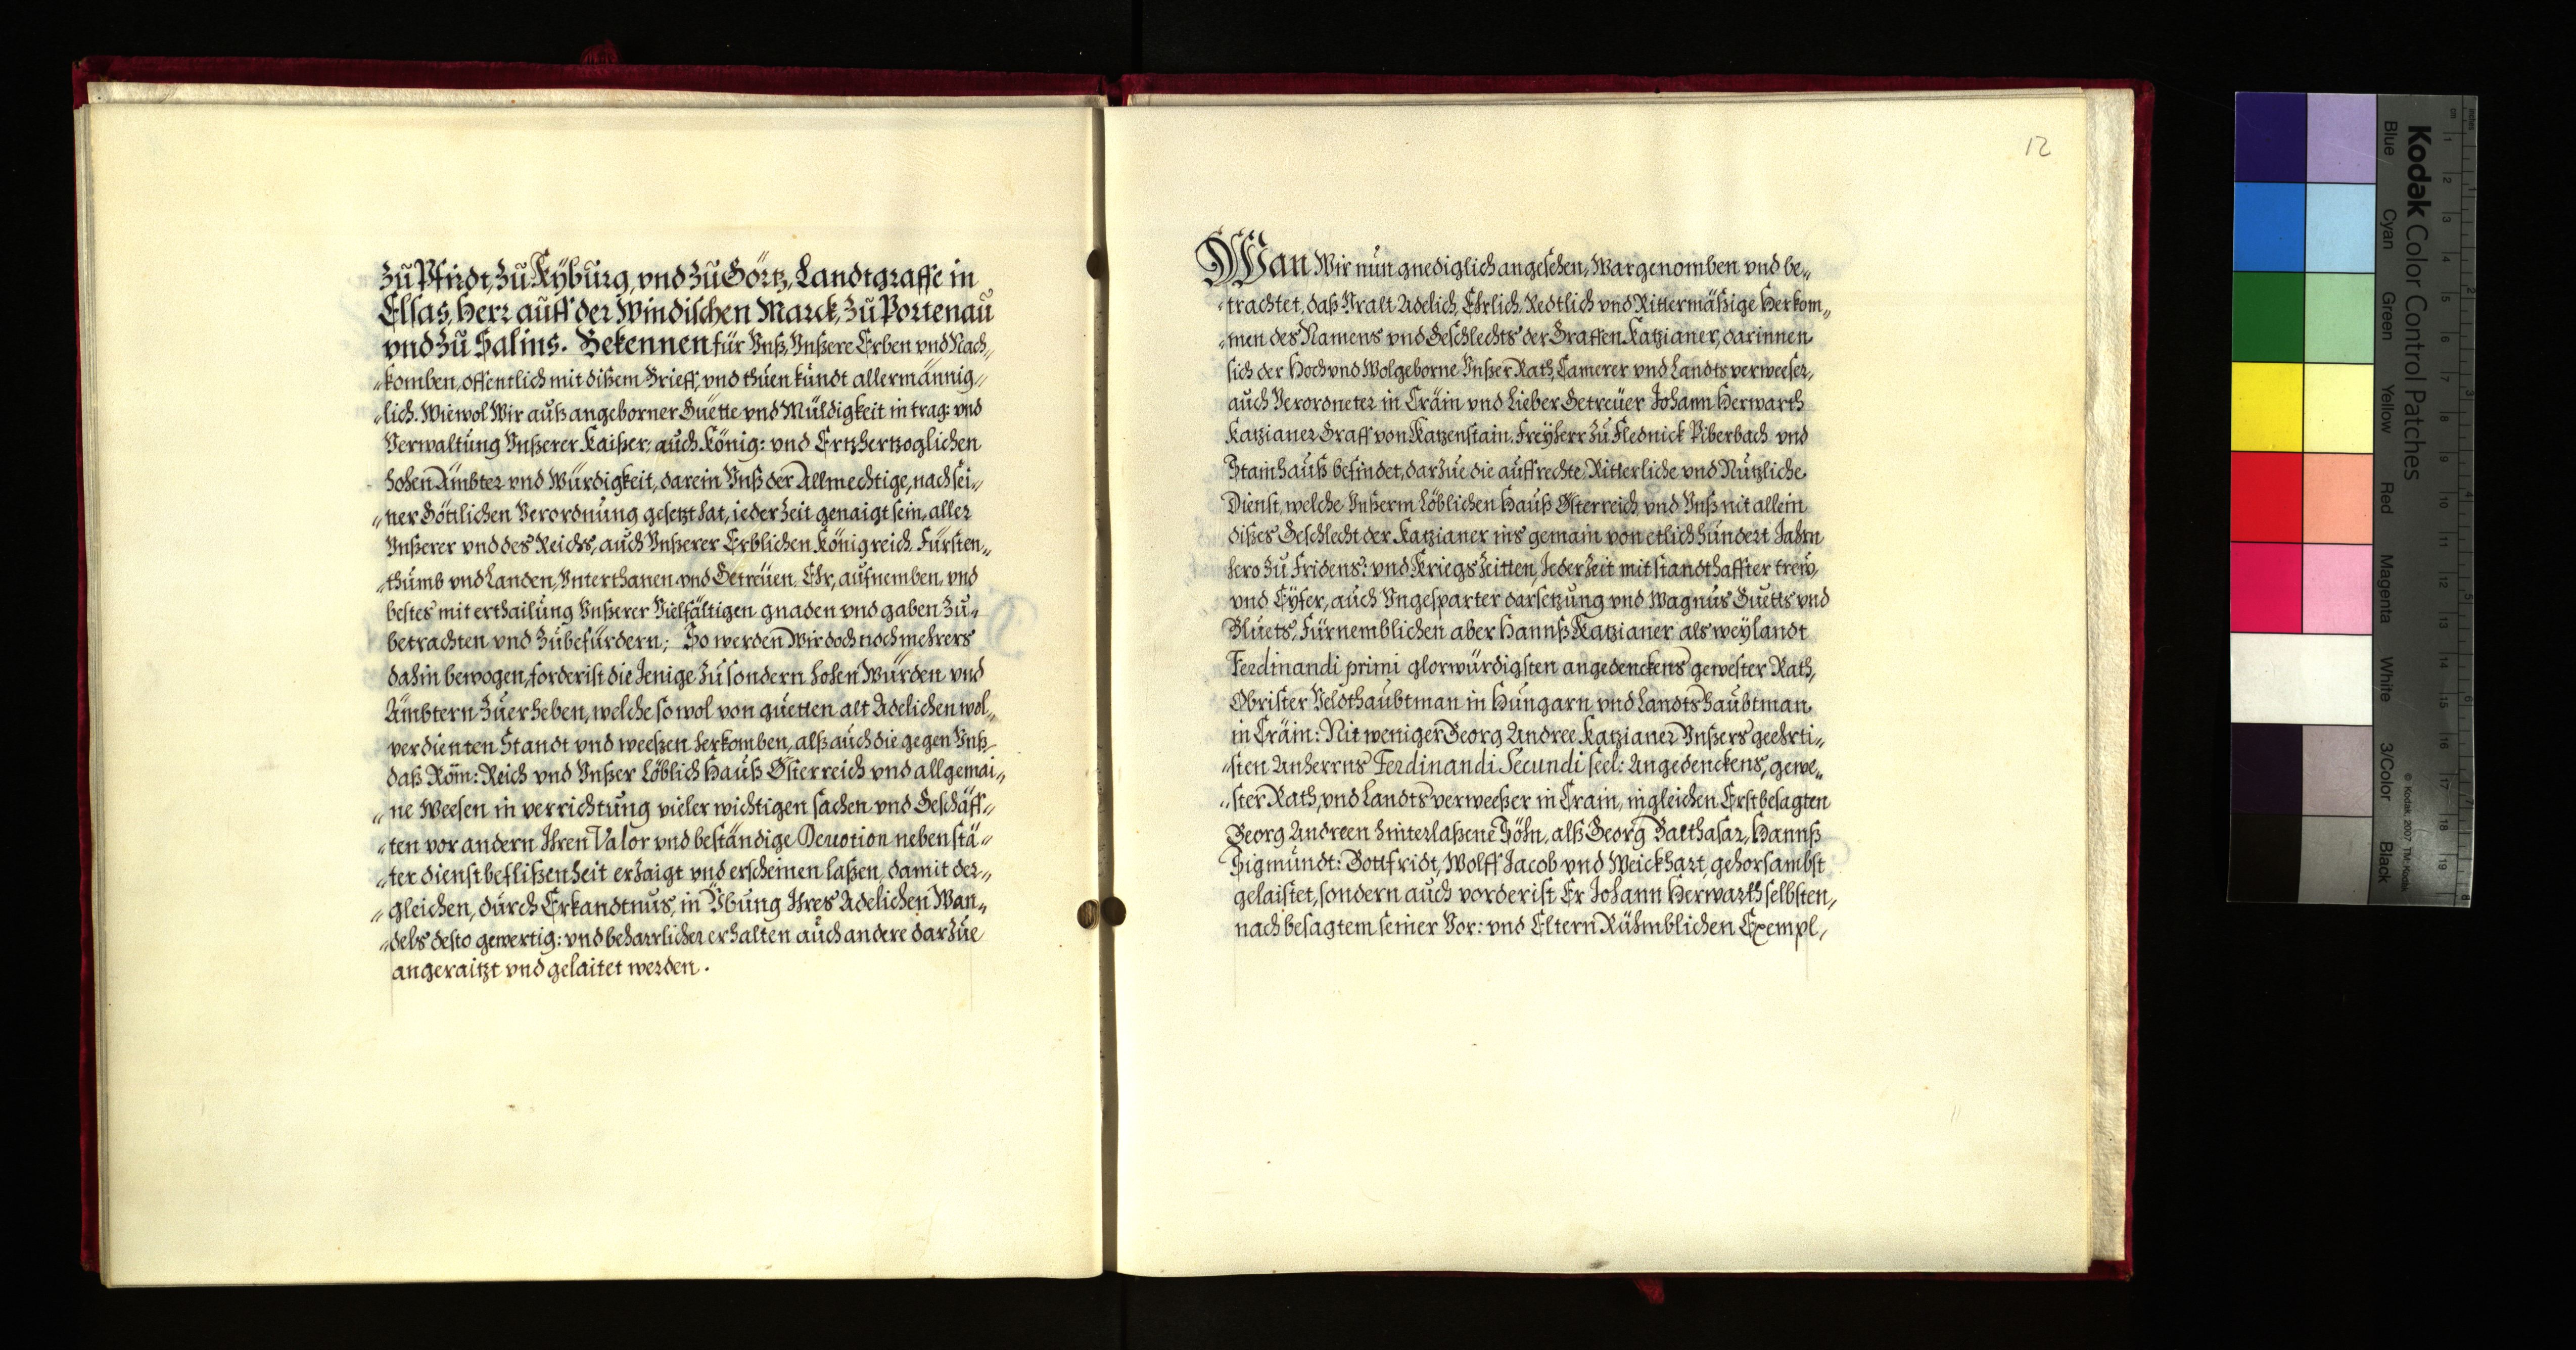 Zu Pfirdt, Zu Kÿburg, vnd Zu Görtz, Landtgraffe in
Elsas, Herr auff der Windischen Marck, Zu Portenau
vnd Zu Salins. Bekennen für Vnß, Vnßere Erben vnd Nach„
„komben, offentlich mit dißem Brieff, vnd thuen kundt allermännig„
„lich. Wiewol Wir auß angeborner Güette vnd Müldigkeit in trag: vnd
Verwaltung Vnßerer Kaißer: auch König: vnd Ertzhertzoglichen
hohen Ämbter vnd Würdigkeit, darein Vnß der Allmechtige, nach sei„
„ner Göttlichen Verordnung gesetzt hat, ieder Zeit genaigt sein, aller
Vnßerer vnd des Reichs, auch Vnßerer Erblichen Königreich Fürsten„
„thumb vnd Landen, Vnterthanen vnd Getreüen, Ehr, aufnemben, vnd
bestes mit erthailung Vnßerer Vielfältigen gnaden vnd gaben Zu„
betrachten vnd Zubefürdern; So werden Wir doch noch mehrers
dahin bewogen, forderist die Jenige Zu sondern hohen Würden vnd
Ämbtern Zuerheben, welche so wol von guetten alt Adelichen wol„
verdienten Standt vnd weeßen herkomben, alß auch die gegen Vnß
daß Röm: Reich vnd Vnßer Löblich Hauß Össterreich vnd allgemai„
„ne Weesen in verrichtung vieler wichtigen sachen vnd Geschäff„
„ten vor andern Ihren Valor vnd beständige Deuotion neben stä„
„ter dienstbeflißenheit erzaigt vnd erscheinen laßen, damit der„
„gleichen, durch Erkandtnus, in Übung Ihres Adelichen Wan„
„dels desto gewertig: vnd beharrlicher erhalten auch andere darzue
angeraitzt vnd gelaitet werden.
12
Wan Wir nun gnediglich angesehen, Wargenomben vnd be„
„trachtet, daß Vralt Adelich, Ehrlich, Redtlich vnd Rittermäßige Herkom„
„men des Namens vnd Geschlechts der Graffen Katzianer, darinnen
sich der Hoch vnd Wolgeborne Vnßer Rath, Camerer vnd Landtsverweeser,
auch Verordneter in Cräin vnd Lieber Getreüer Johann Herwarth
Katzianer Graff von Katzenstain, Freÿherr Zu Flednick Piberbach vnd
Stainhauß befindet, darzue die auffrechte, Ritterliche vnd Nutzliche
Dienst, welche Vnßerm Löblichen Hauß Össterreich vnd Vnß nit allein
dißes Geschlecht der Katzianer ins gemain von etlich hundert Jahrn
hero Zu Fridens: vnd Kriegs Zeitten, Jeder Zeit mit standthaffter trew,
vnd Eÿfer, auch Vngesparter darsetzung vnd Wagnus Guetts vnd
Bluets, Fürnemblichen aber Hannß Katzianer als weÿlandt
Ferdinandi primi glorwürdigsten angedenckens gewester Rath,
Obrister Veldthaubtman in Hungarn vnd Landtshaubtman
in Cräin: Nit weniger Georg Andree Katzianer Vnßers geehrti„
„sten Anherrns Ferdinandi Secundi seel: Angedenckens, gewe„
„ster Rath, vnd Landtsverweeßer in Crain, ingleichen Erstbesagten
Georg Andreen hinterlaßene Söhn, alß Georg Balthasar, Hannß
Sigmundt: Gottfridt, Wolff Jacob vnd Weickhart, gehorsambst
gelaistet, sondern auch vorderist Er Johann Herwarth selbsten,
nach besagtem seiner Vor: vnd Eltern Rühmblichen Exempl,
Kodak Color Control Patches
Blue
Cyan
Green
Yellow
Red
Magenta
White
3/Color
Black